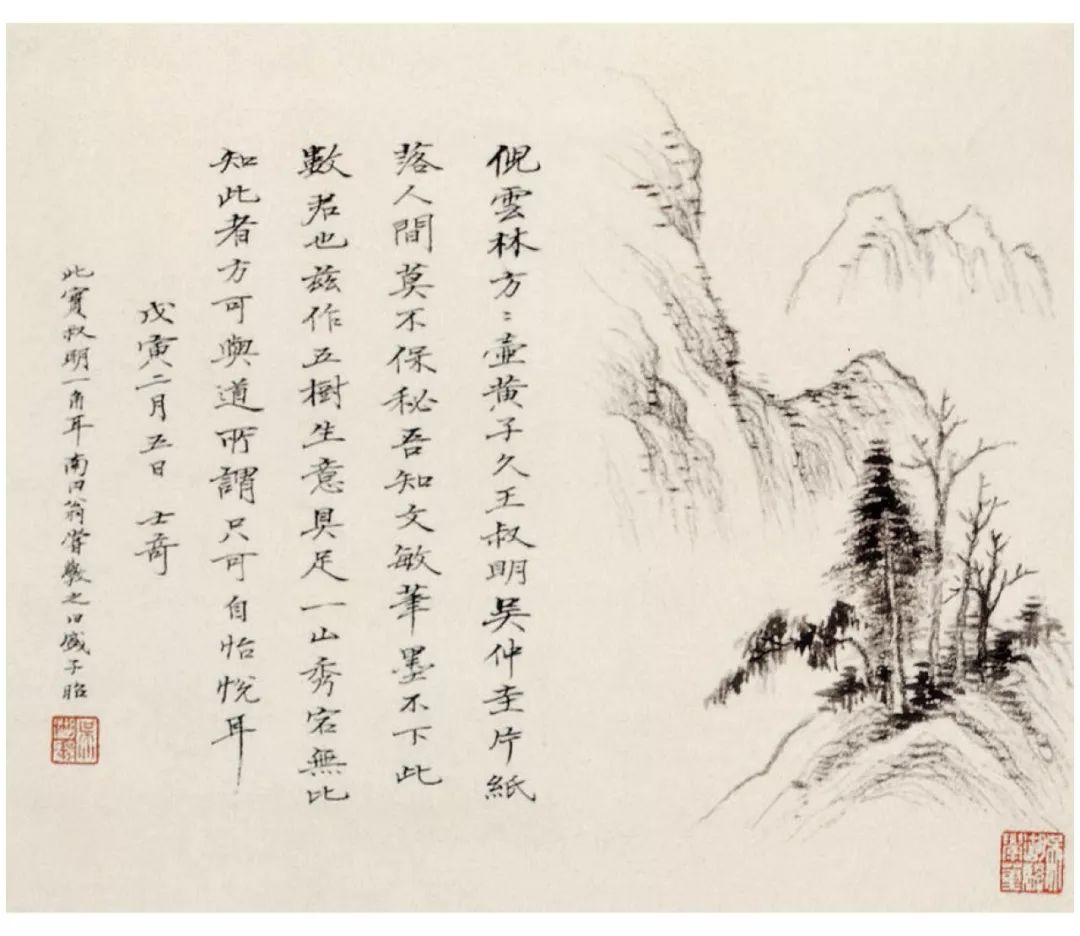 倪雲林方：壷黄子久王叔明吴仲圭片紙
落人間莫不保秘吾知文敏筆墨不下此
數君也兹作五樹生意具足一山秀宕無比
知此者方可與道所謂只可自怡悦耳
戊寅二月五日 士奇
此實叔明一角耳南田翁嘗